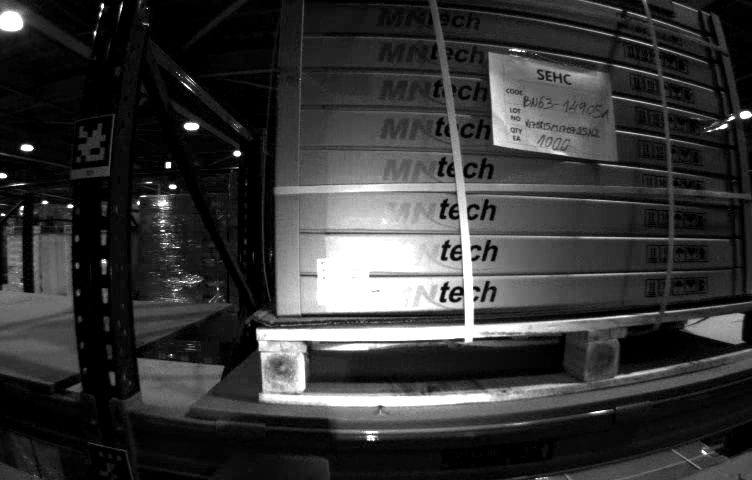 MNtech
MNtech
MNtech
MNtech
MNtech
MNtech
MNtech
MNtech
SEHC
CODE BN63-14905A
LOT NO
QTY EA 1000